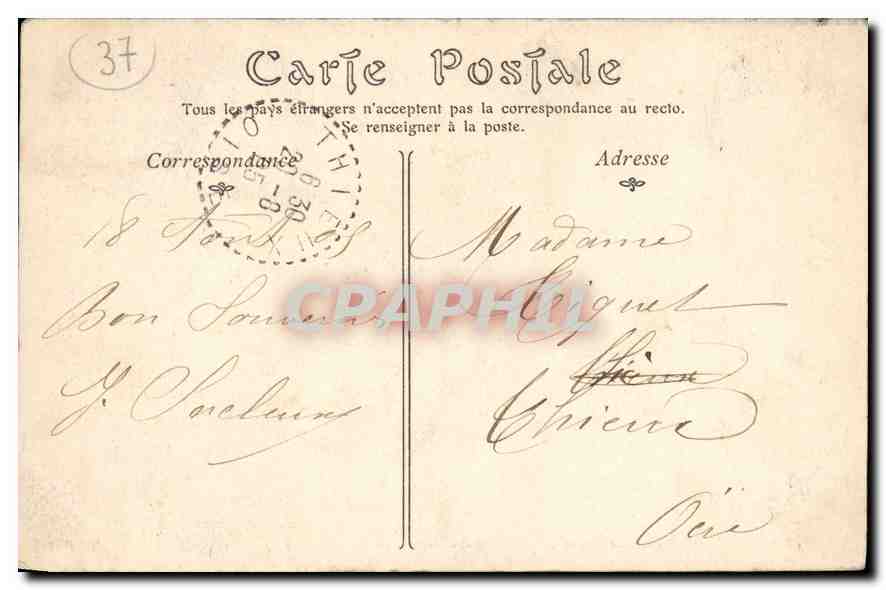 37
Carte Postale
Tous les pays étrangers n'acceptent pas la correspondance au recto.
Se renseigner à la poste.
Correspondance
Adresse
THIEUX
OISE
6 30
20 - 8
5
18 Août 05
Bon Souvenir
Y.
Madame
CPAPHIL
Thieux
Oise